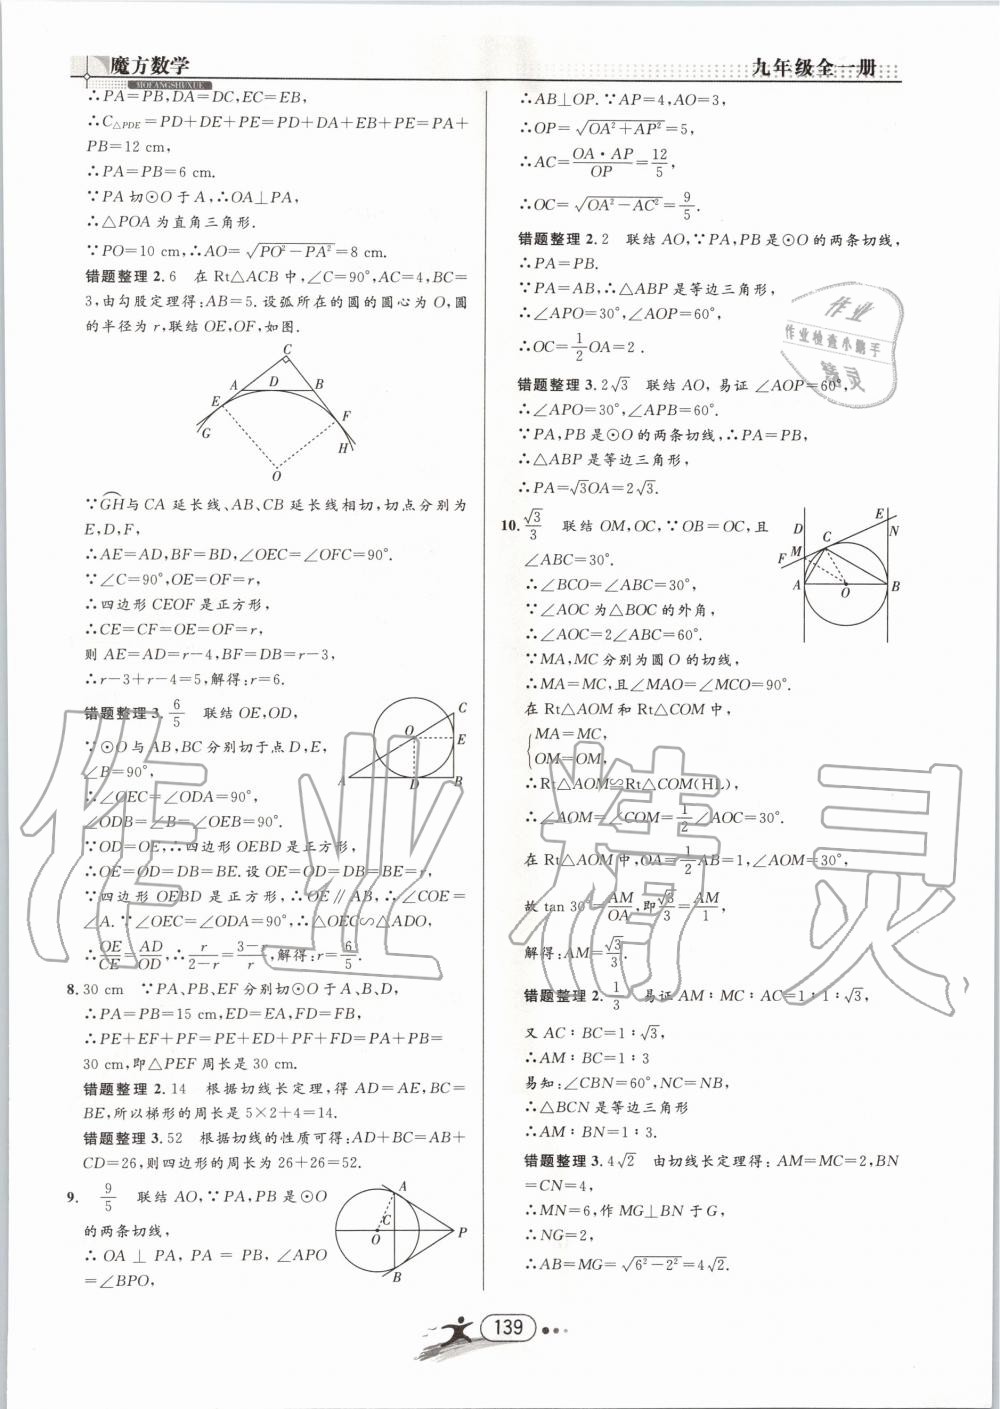 魔方数学
MOFANGSHUXUE
九年级全一册
∴PA=PB,DA=DC,EC=EB,
∴C△PDE=PD+DE+PE=PD+DA+EB+PE=PA+
PB=12 cm,
∴PA=PB=6 cm.
∵PA切⊙O于A,∴OA⊥PA,
∴△POA为直角三角形.
∵PO=10 cm,∴AO=√(PO²-PA²)=8 cm.
错题整理2.6 在Rt△ACB中,∠C=90°,AC=4,BC=
3,由勾股定理得:AB=5.设弧所在的圆的圆心为O,圆
的半径为r,联结OE,OF,如图.
C
A D B
E F
G H
O
∵GH与CA延长线、AB、CB延长线相切,切点分别为
E,D,F,
∴AE=AD,BF=BD,∠OEC=∠OFC=90°.
∵∠C=90°,OE=OF=r,
∴四边形CEOF是正方形,
∴CE=CF=OE=OF=r,
则AE=AD=r-4,BF=DB=r-3,
∴r-3+r-4=5,解得:r=6.
错题整理3.6/5 联结OE,OD,
∵⊙O与AB,BC分别切于点D,E,
∠B=90°,
∴∠OEC=∠ODA=90°,
∠ODB=∠B=∠OEB=90°.
∵OD=OE,∴四边形OEBD是正方形,
∴OE=OD=DB=BE.设OE=OD=DB=BE=r,
∵四边形OEBD是正方形,∴OE∥AB,∴∠COE=
∠A.∵∠OEC=∠ODA=90°,∴△OEC∽△ADO,
∴OE/CE=AD/OD,∴r/(2-r)=(3-r)/r,解得:r=6/5.
C
O E
A D B
8.30 cm ∵PA、PB、EF分别切⊙O于A、B、D,
∴PA=PB=15 cm,ED=EA,FD=FB,
∴PE+EF+PF=PE+ED+PF+FD=PA+PB=
30 cm,即△PEF周长是30 cm.
错题整理2.14 根据切线长定理,得AD=AE,BC=
BE,所以梯形的周长是5×2+4=14.
错题整理3.52 根据切线的性质可得:AD+BC=AB+
CD=26,则四边形的周长为26+26=52.
9. 9/5 联结AO,∵PA,PB是⊙O
的两条切线,
∴OA⊥PA,PA=PB,∠APO
=∠BPO,
A
C
O P
B
∴AB⊥OP.∵AP=4,AO=3,
∴OP=√(OA²+AP²)=5,
∴AC=OA·AP/OP=12/5,
∴OC=√(OA²-AC²)=9/5.
错题整理2.2 联结AO,∵PA,PB是⊙O的两条切线,
∴PA=PB.
∵PA=AB,∴△ABP是等边三角形,
∴∠APO=30°,∠AOP=60°,
∴OC=1/2OA=2.
错题整理3.2√3 联结AO,易证∠AOP=60°,
∴∠APO=30°,∠APB=60°.
∵PA,PB是⊙O的两条切线,∴PA=PB,
∴△ABP是等边三角形,
∴PA=√3OA=2√3.
10.√3/3 联结OM,OC,∵OB=OC,且
∠ABC=30°.
∴∠BCO=∠ABC=30°,
∵∠AOC为△BOC的外角,
∴∠AOC=2∠ABC=60°.
∵MA,MC分别为圆O的切线,
∴MA=MC,且∠MAO=∠MCO=90°.
在Rt△AOM和Rt△COM中,
MA=MC,
OM=OM,
∴Rt△AOM≌Rt△COM(HL),
∴∠AOM=∠COM=1/2∠AOC=30°.
在Rt△AOM中,OA=1/2AB=1,∠AOM=30°,
故tan 30°=AM/OA,即√3/3=AM/1,
解得:AM=√3/3.
D E
C N
F M
A O B
错题整理2. 1/3 易证AM∶MC∶AC=1∶1∶√3,
又AC∶BC=1∶√3,
∴AM∶BC=1∶3
易知:∠CBN=60°,NC=NB,
∴△BCN是等边三角形
∴AM∶BN=1∶3.
错题整理3.4√2 由切线长定理得:AM=MC=2,BN
=CN=4,
∴MN=6,作MG⊥BN于G,
∴NG=2,
∴AB=MG=√(6²-2²)=4√2.
139
作业
作业检查小帮手
精灵
作业精灵